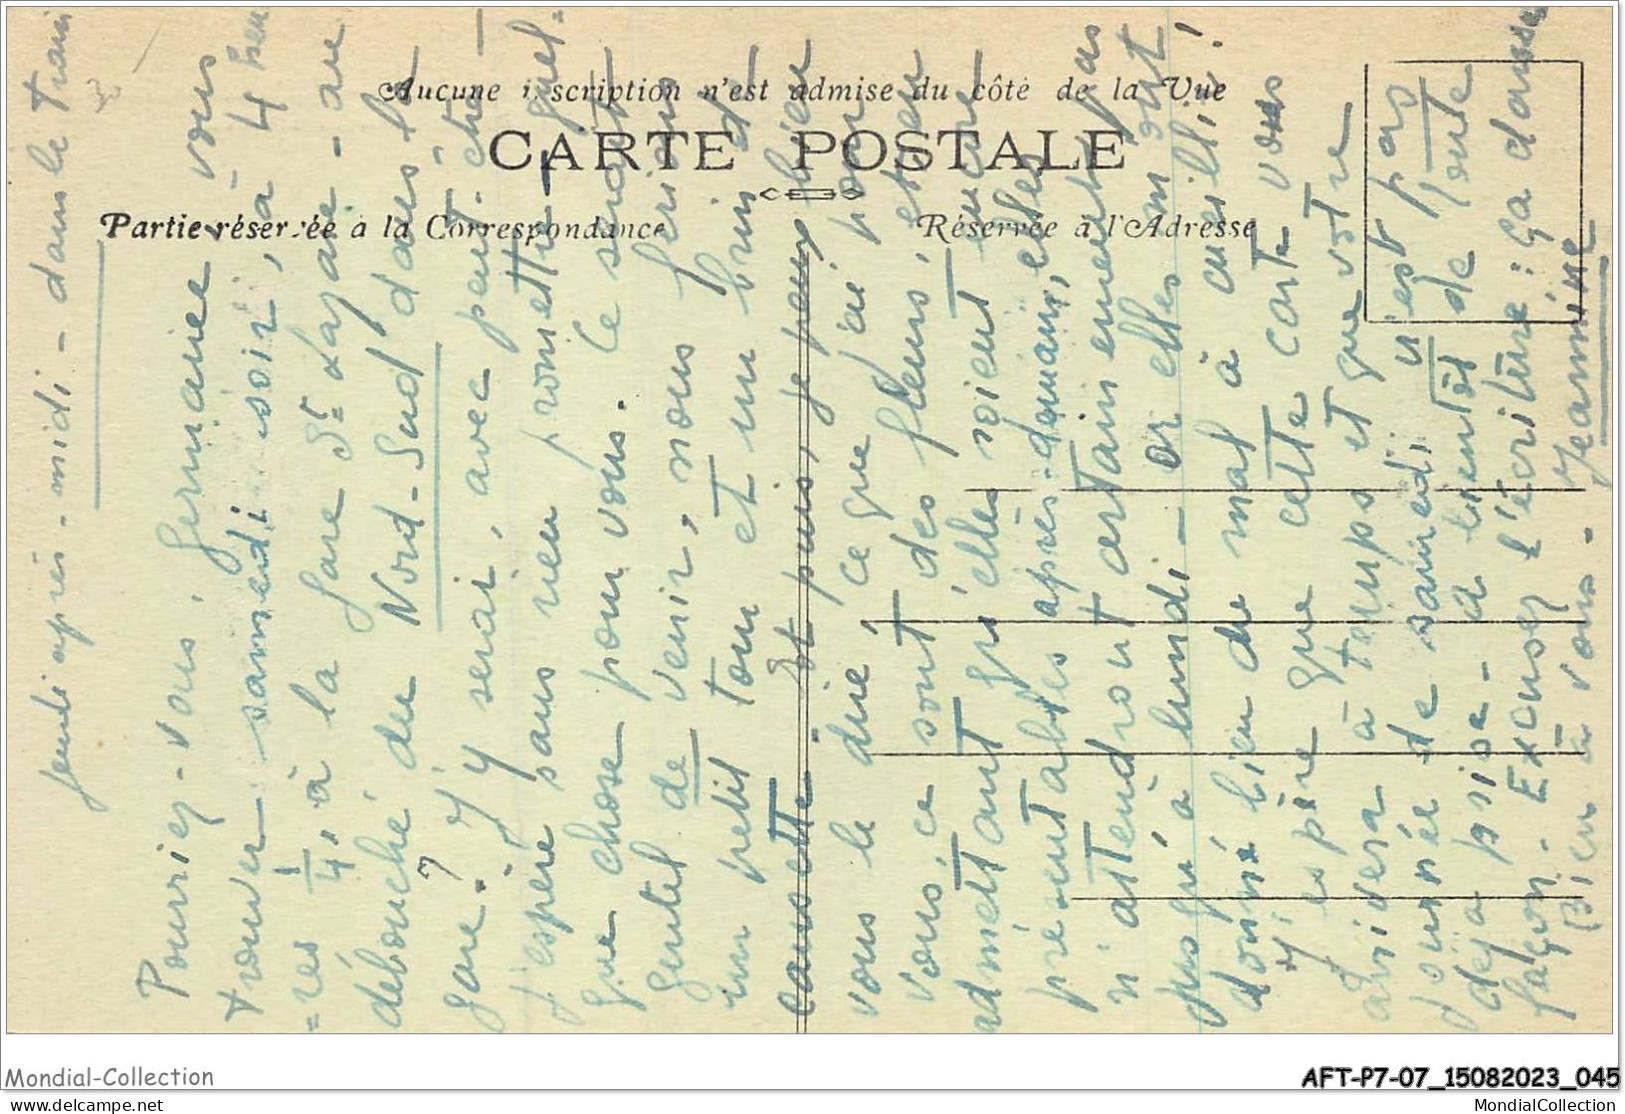 Aucune inscription n'est admise du côté de la Vue
CARTE POSTALE
Partie réservée à la Correspondance
Réservée à l'Adresse
Jeudi après-midi - dans le train
Pourriez-vous, Germaine, vous
trouver samedi soir, à 4 heu
=res 1/4, à la gare St Lazare - au
débouché du Nord-Sud dans la
gare? J'y serai, avec peut-être -
j'espère sans rien promettre - quel=
que chose pour vous. Ce serait
gentil de venir, nous ferions
un petit tour et un brin de
causette. Et puis, je peux bien
vous le dire, ce que j'ai pour
vous, ce sont des fleurs, et en
admettant qu'elles soient encore
présentables après-demain, elles
n'attendront certainement pas
jusqu'à lundi - car elles ont
donné bien du mal à cueillir!
J'espère que cette carte vous
arrivera à temps et que votre
journée de samedi n'est pas
déjà prise - à bientôt de toute
façon. Excusez l'écriture: ça danse
Bien à vous. Jeannine
Mondial-Collection
AFT-P7-07_15082023_045
www.delcampe.net
MondialCollection